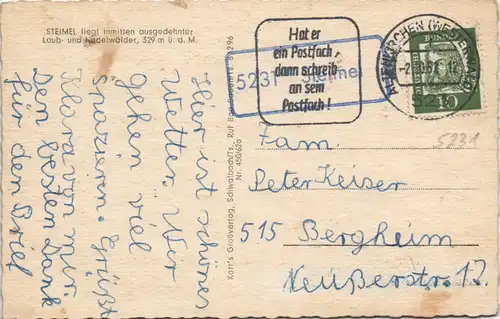 STEIMEL liegt inmitten ausgedehnter
Laub- und Nadelwälder, 329 m ü. d. M.
Hier ist schönes
Wetter. Wir
gehen viel
spazieren. Grüßt
Klara von mir.
Den besten Dank
für den Brief
Korr's Großverlag, Schwalbach/Ts., Ruf Bad
Nr. 450/62a
Hat er
ein Postfach,
dann schreib
an sein
Postfach!
5231 Steimel
5231
Fam.
Peter Kaiser
515 Bergheim
Neußerstr. 12.